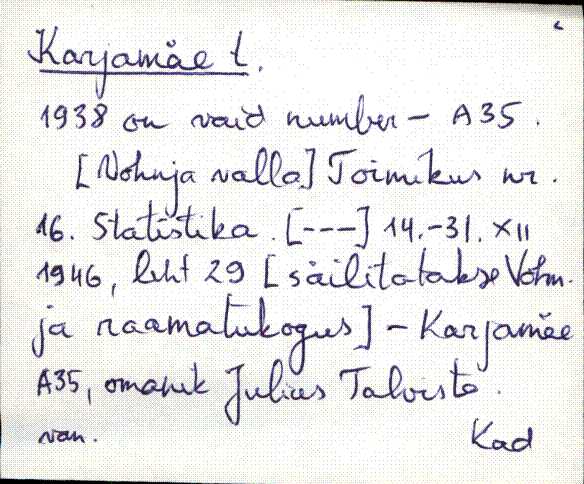 Karjamäe t.
1938 on vaid number – A35.
[Vohnja valla] Toimikus nr.
16. Statistika. [---] 14.-31. XII
1946, leht 29 [säilitatakse Vohn-
ja raamatukogus] – Karjamäe
A35, omanik Julius Talviste.
van. Kad